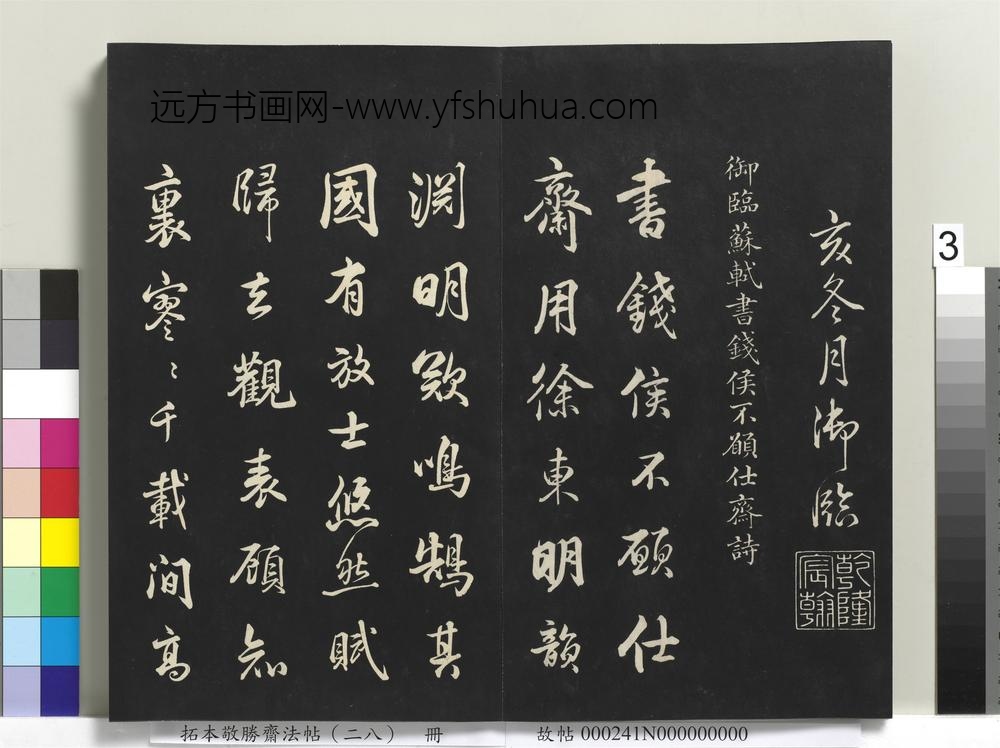 远方书画网-www.yfshuhua.com
亥冬月御臨
乾隆
宸翰
御臨蘇軾書錢侯不願仕齋詩
書錢侯不願仕
齋用徐東明韻
淵明欸鳴鵠其
國有放士悠然賦
歸去觀表顧知
裏寥〻千載間高
3
拓本敬勝齋法帖（二八） 冊
故帖 000241N000000000